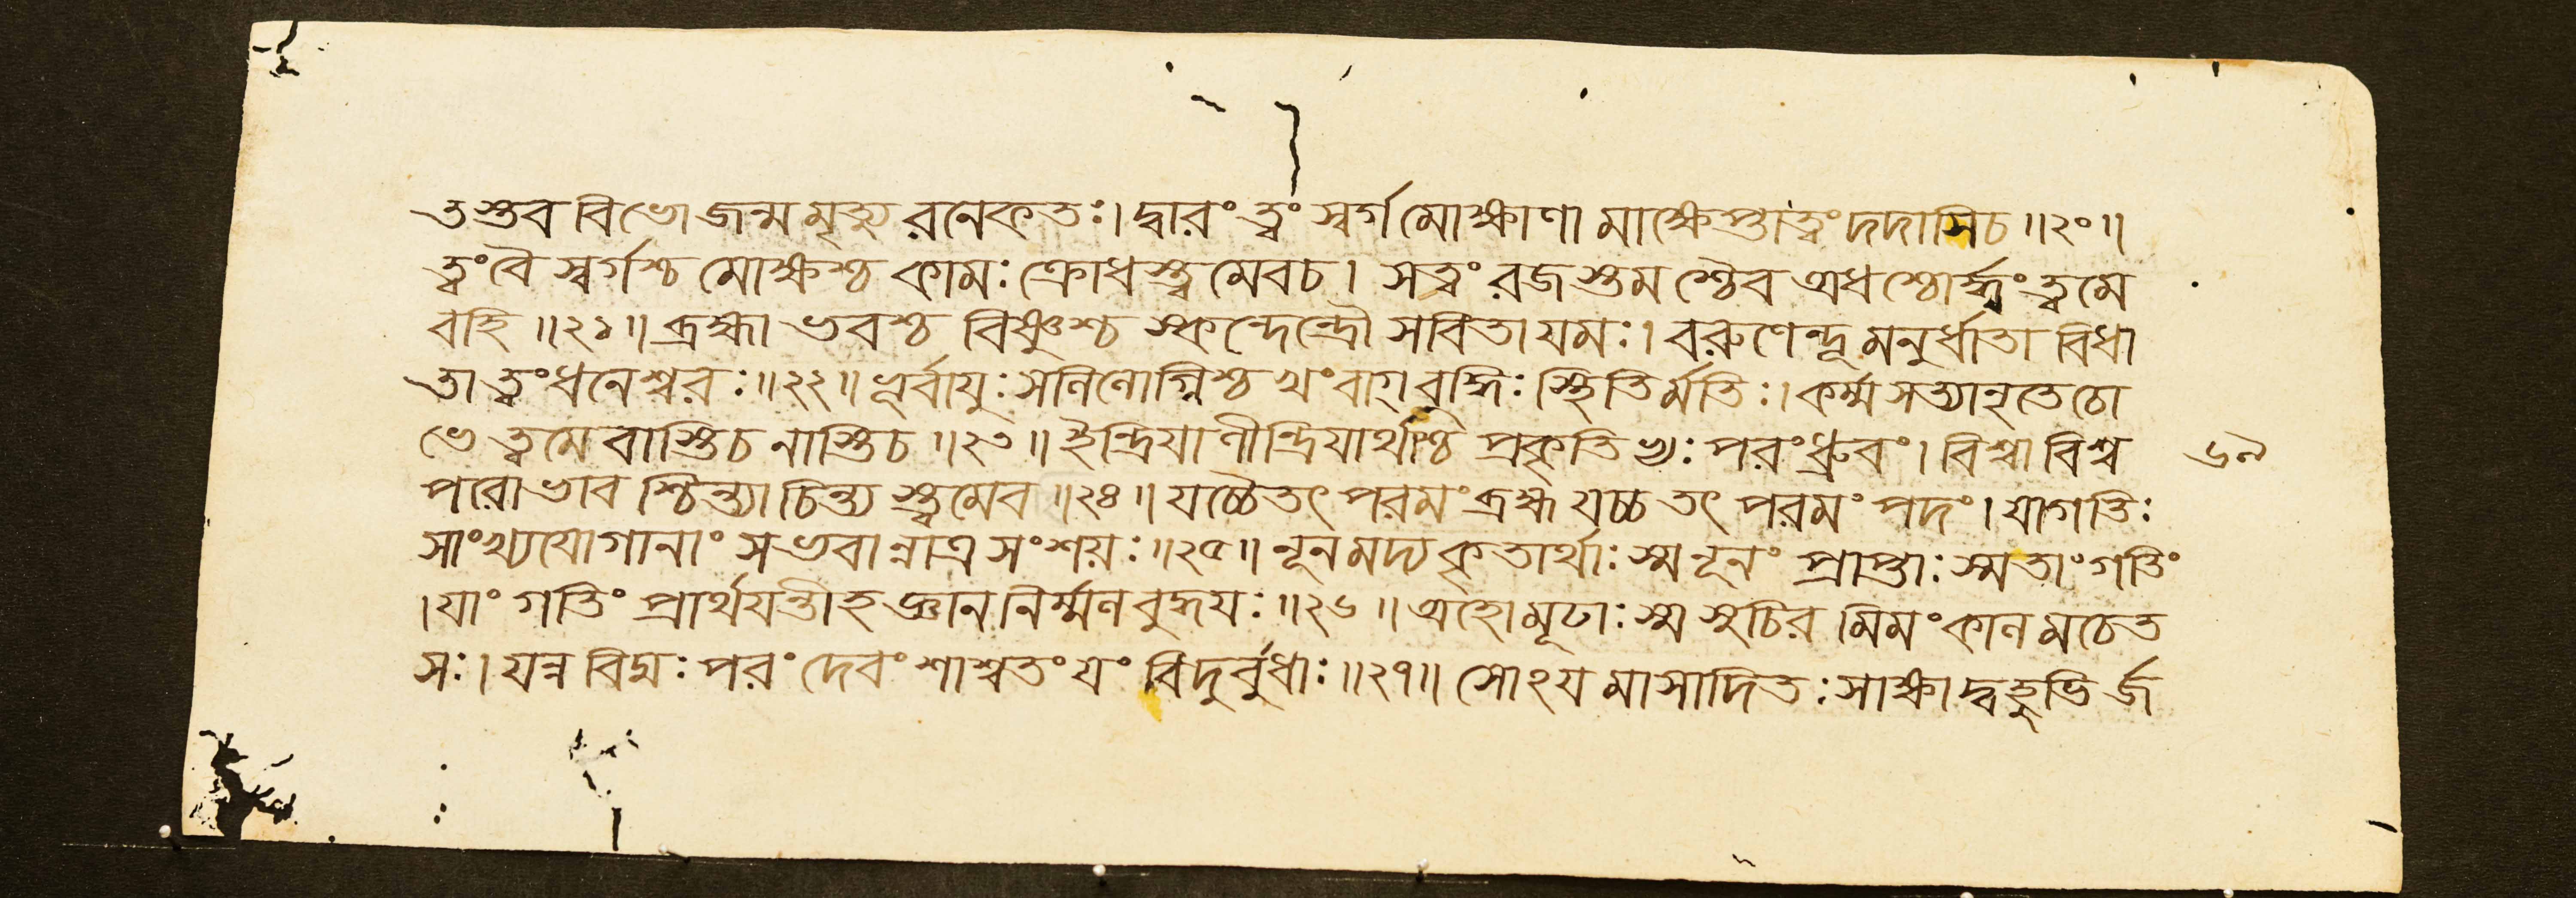 তস্তব বিভো জন্ম মৃত্যু রনেকতঃ। দ্বারং ত্বং স্বর্গ মোক্ষাণা মাক্ষেপ্তাত্বং দদাসিচ॥২০॥
ত্বং বৈ স্বর্গশ্চ মোক্ষশ্চ কামঃ ক্রোধস্ত্বমেবচ। সত্বং রজস্তমশ্চৈব অধশ্চোর্দ্ধং ত্বমে
বহি॥২১॥ ব্রহ্মা ভবশ্চ বিষ্ণুশ্চ স্কন্দেন্দ্রৌ সবিতা যমঃ। বরুণেন্দূ মনুর্ধাতা বিধা
তা ত্বং ধনেশ্বরঃ॥২২॥ ভূর্বায়ুঃ সলিলোগ্নিশ্চ খং বাগ্ বুদ্ধিঃ স্থিতির্মতিঃ। কর্ম্ম সত্যানৃতেচো
ভে ত্বমে বাস্তিচ নাস্তিচ॥২৩॥ ইন্দ্রিয়াণীন্দ্রিয়ার্থাশ্চ প্রকৃতিভ্যঃ পরং ধ্রুবং। বিশ্বা বিশ্ব
পরো ভাব শ্চিন্ত্যা চিন্ত্য স্ত্বমেব॥২৪॥ যচ্চৈতৎ পরমং ব্রহ্ম যচ্চ তৎ পরমং পদং। যা গতিঃ
সাংখ্যযোগানাং স ভবান্নাত্র সংশয়ঃ॥২৫॥ নূনমদ্য কৃতার্থাঃ স্ম নূনং প্রাপ্তাঃ স্ম তাং গতিং
। যাং গতিং প্রার্থয়ন্তীহ জ্ঞান নির্ম্মল বুদ্ধয়ঃ॥২৬॥ অহো মূঢাঃ স্ম সুচির মিমং কাল মচেত
সঃ। যন্ন বিদ্মঃ পরং দেবং শাশ্বতং যং বিদুর্বুধাঃ॥২৭॥ সোঽয় মাসাদিতঃ সাক্ষাদ্বহুভির্জ
৬৯